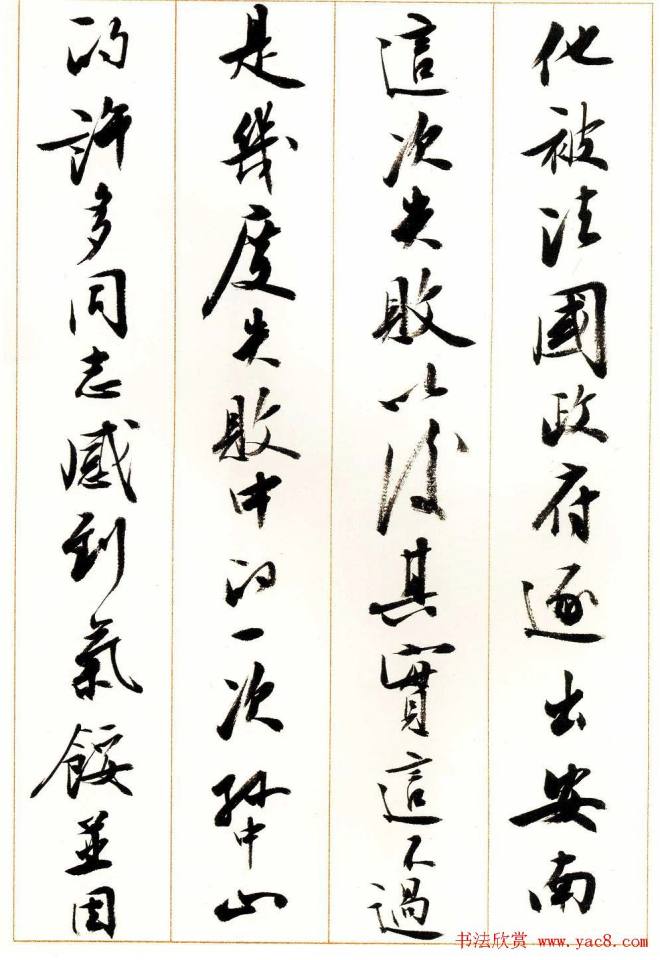 他被法國政府逐出安南
這次失敗以後其實這不過
是幾度失敗中的一次孫中山
的許多同志感到氣餒並因
书法欣赏 www.yac8.com